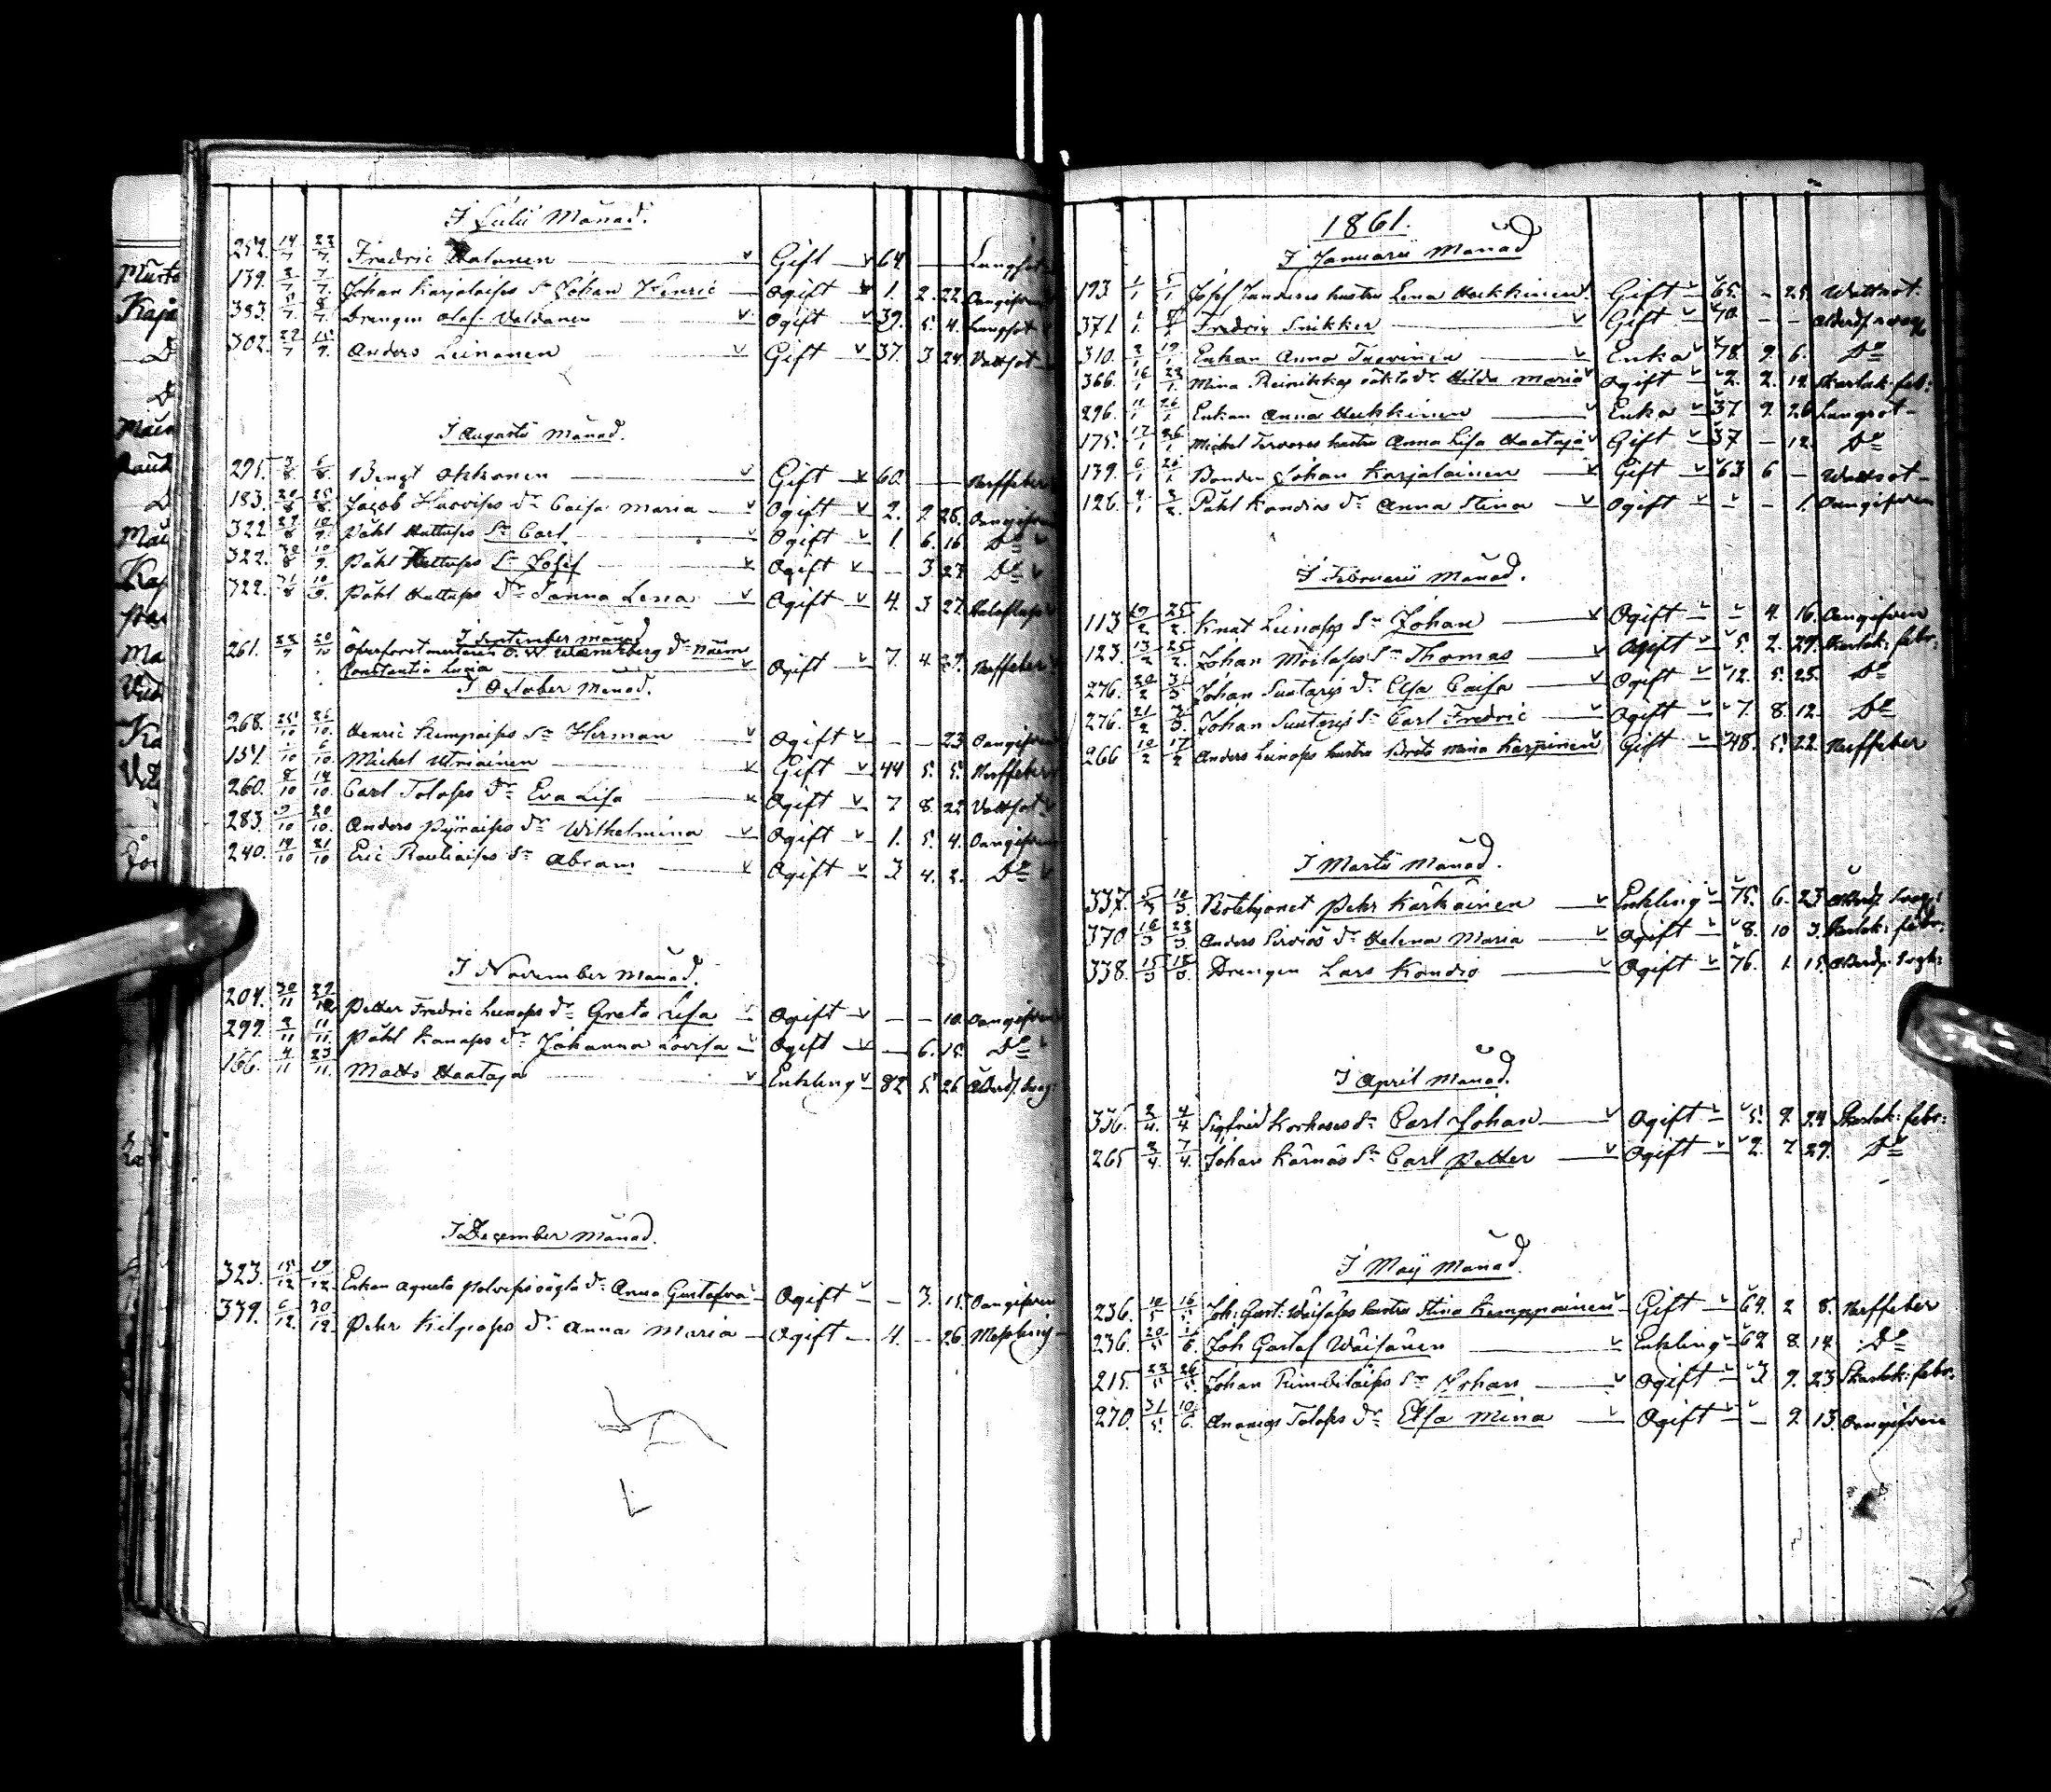 I Julii Månad.
257. 14/7 22/7. Fredric Halonen Gift 64 — — Lungsot
139. 3/7. 7/7. Johan Karjalaisps Sn Johan Henric Ogift 1. 2. 22. Oangifven
383. 5/7. 8/7. Drengen Olof Valdanen Ogift 39. 5. 4. Lungsot
302. 22/7 15/9. Anders Leinonen Gift 37. 3 24. Vattsot
I Augusti Månad.
295. 3/8 6/8. Bengt Okkonen Gift 60. — — Nerffeber
183. 20/8 25/8. Jacob Hurvisps dr Caisa Maria Ogift 2. 2 28. Oangifven
322. 27/8 10/9. Påhl Huttusps Sn Carl Ogift 1. 6. 16. Do
322. 30/8 10/9. Påhl Huttusps Sn Josef Ogift — 3. 27 Do
322. 31/8 10/9. Påhl Huttusps dr Sanna Lena Ogift 4. 3 27.
I September månad
261. Öfverforstmästaren dr Naëm
Constantia Lucia Ogift 7. 4 29. Nerffeber
I October Månad.
268. 25/10 26/10. Henric Kempaisps Sn Herman Ogift — — 23 Oangifven
151. 1/10 6/10. Michel Utriainen Gift 44 5. 5. Nerffeber
260. 8/10 14/10. Carl Tolosps dr Eva Lisa Ogift 7 8. 22 Vattsot
283. 9/10 20/10. Anders Pyraisps dr Wilhelmina Ogift 1. 5. 4. Oangifven
240. 14/10 21/10 Eric Rautiaisps Sn Abram Ogift 3 4. 2. Do
I November Månad.
204. 30/11 27/12 Petter Fredric Leinosps dr Greta Lisa Ogift — — 10. Oangifven
299. 2/11 11/11. Påhl Kanasps dr Johanna Lovisa Ogift — 6. 15. Do
166. 4/11 23/11. Matts Haataja Enkling 82 5. 26 Ålderd. svag:
I December Månad.
323. 15/12 19/12 Enkan Agneta Polvisps oägta dr Anna Gustafva Ogift — 3. 15. Oangifven
339. 6/12. 30/12. Pehr Kilpasps dr Anna Maria Ogift 4. — 26. Messling
1861.
I Januarii Månad
193 1/1 5/1 Josef Tanderes hustru Lena Huskkinen Gift 65. — 25. Wattsot.
371 1/1. 6/1 Fredric Snikker Gift 70. — — Ålderd. svag
310. 2/1 19/1 Enkan Anna Tuovinen Enka 78. 9. 6. Do
366. 16/1 23/1. Mina Reinikkas oäkta dr Hilda Maria Ogift 2. 2. 12. Skarlak: feb:
296. 11/1 26/1 Enkan Anna Hukkinen Enka 37 9. 26 Lungsot
175. 17/1 26/1. Michel Tervores hustru Anna Lisa Haataja Gift 37 — 12. Do
139. 6/1 20/1 Bonden Johan Karjalainen Gift 63 6 — Wattsot
126. 2/1 3/2. Påhl Kandies dr Anna Stina Ogift — — 1. Oangifven
I Februarii Månad.
113 19/2 25/2. Knut Leinosps Sn Johan Ogift — 4. 16. Oangifven
123. 13/2 25/2. Johan Moilasps Sn Thomas Ogift 5. 2. 29. Skarlak: febr:
276. 20/2 3/3. Johan Suutaris dr Elsa Caisa Ogift 12. 5. 25. Do
276. 21/2 3/3. Johan Suutaris Sn Carl Fredric Ogift 7. 8 12. Do
266 10/2 17/2 Anders Leinosps hustru Brita Maria Karppinen Gift 48. 5. 22. Nerffeber
I Martii Månad.
337. 5/3 10/3. Rotehjonet Pehr Kärkäinen Enkling 75. 6. 23 Ålderd. svag:
370. 16/3 23/3. Anders Sirviös dr Helena Maria Ogift 8. 10 3. Skarlak: febr:
338. 15/3 18/3. Drengen Lars Kandio Ogift 76. 1. 15. Ålderd. svagh:
I April Månad.
336. 2/4. 4/4 Sigfrid Korhoses Sn Carl Johan Ogift 5. 9. 24 Skarlak: febr:
265 3/4. 7/4. Johan Kärnäs Sn Carl Petter Ogift 2. 7 29. Do
I Maij Månad.
236. 10/5 16/5. Joh: Gust: Wäisäsps hustru Stina Kemppainen Gift 69. 2 8. Nerffeber
236. 20/5 1/6. Joh Gustaf Wäisänen Enkling 69 8. 14. Do
215. 23/5 26/5. Johan Pimbiläisps Sn Johan Ogift 3 9. 23 Skarlak: febr:
270. 31/5. 10/6. Ananias Tolosps dr Elsa Mina Ogift — 9. 13. Oangifven